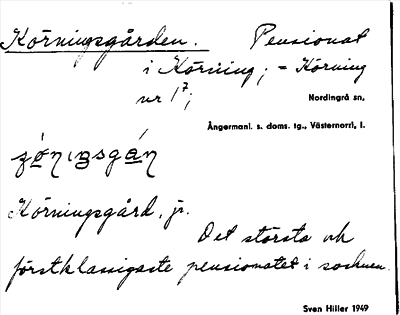 Körningsgården. Pensionat
i Körning; = Körning
nr 1⁷;
Nordingrå sn,
Ångermanl. s. doms. tg., Västernorrl, l.
Körningsgård, jr.
Det största och
förstklassigaste pensionatet i socknen.
Sven Hiller 1949